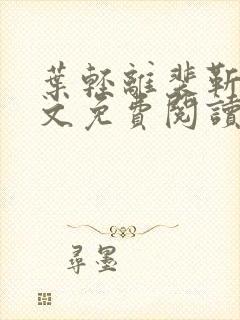 葉輕離裴靳
文免費閱讀
尋墨